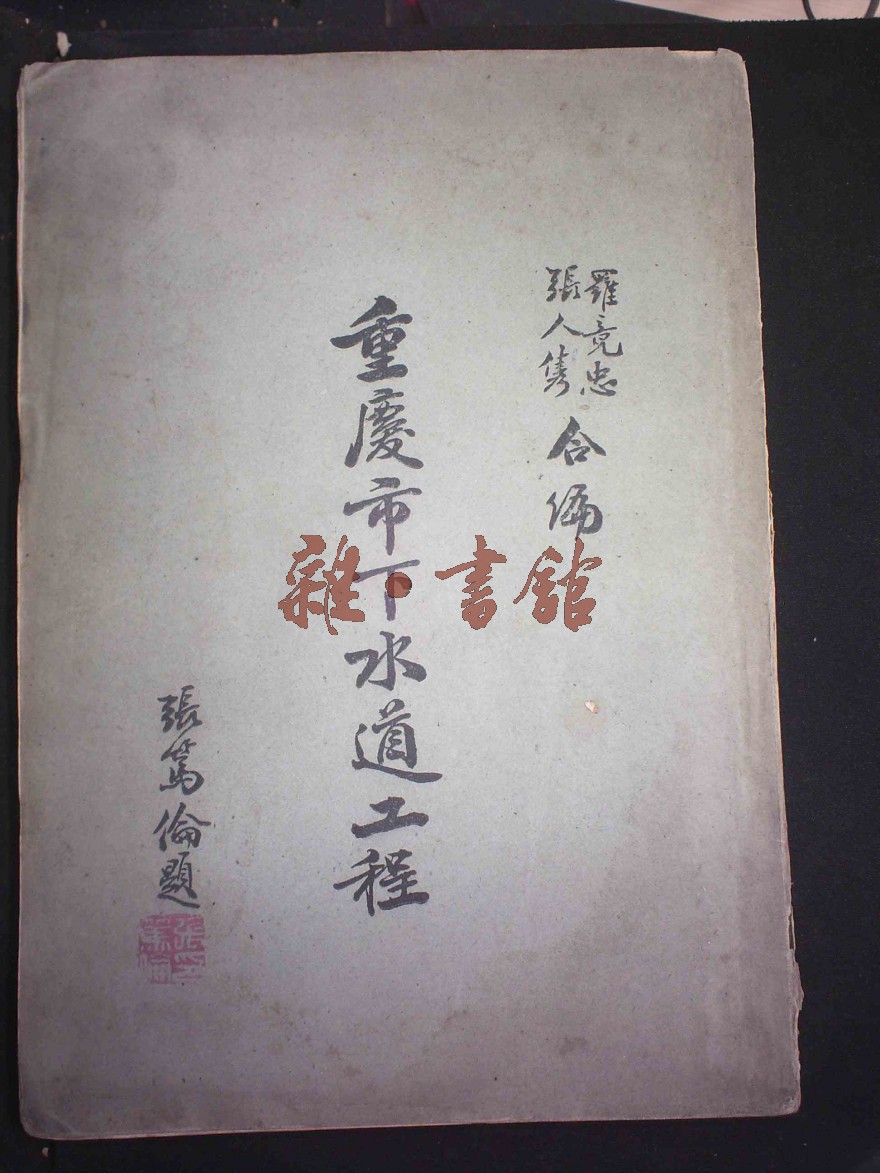 羅竟忠
張人雋
合編
重慶市下水道工程
張篤倫題
張篤倫印
雜·書館